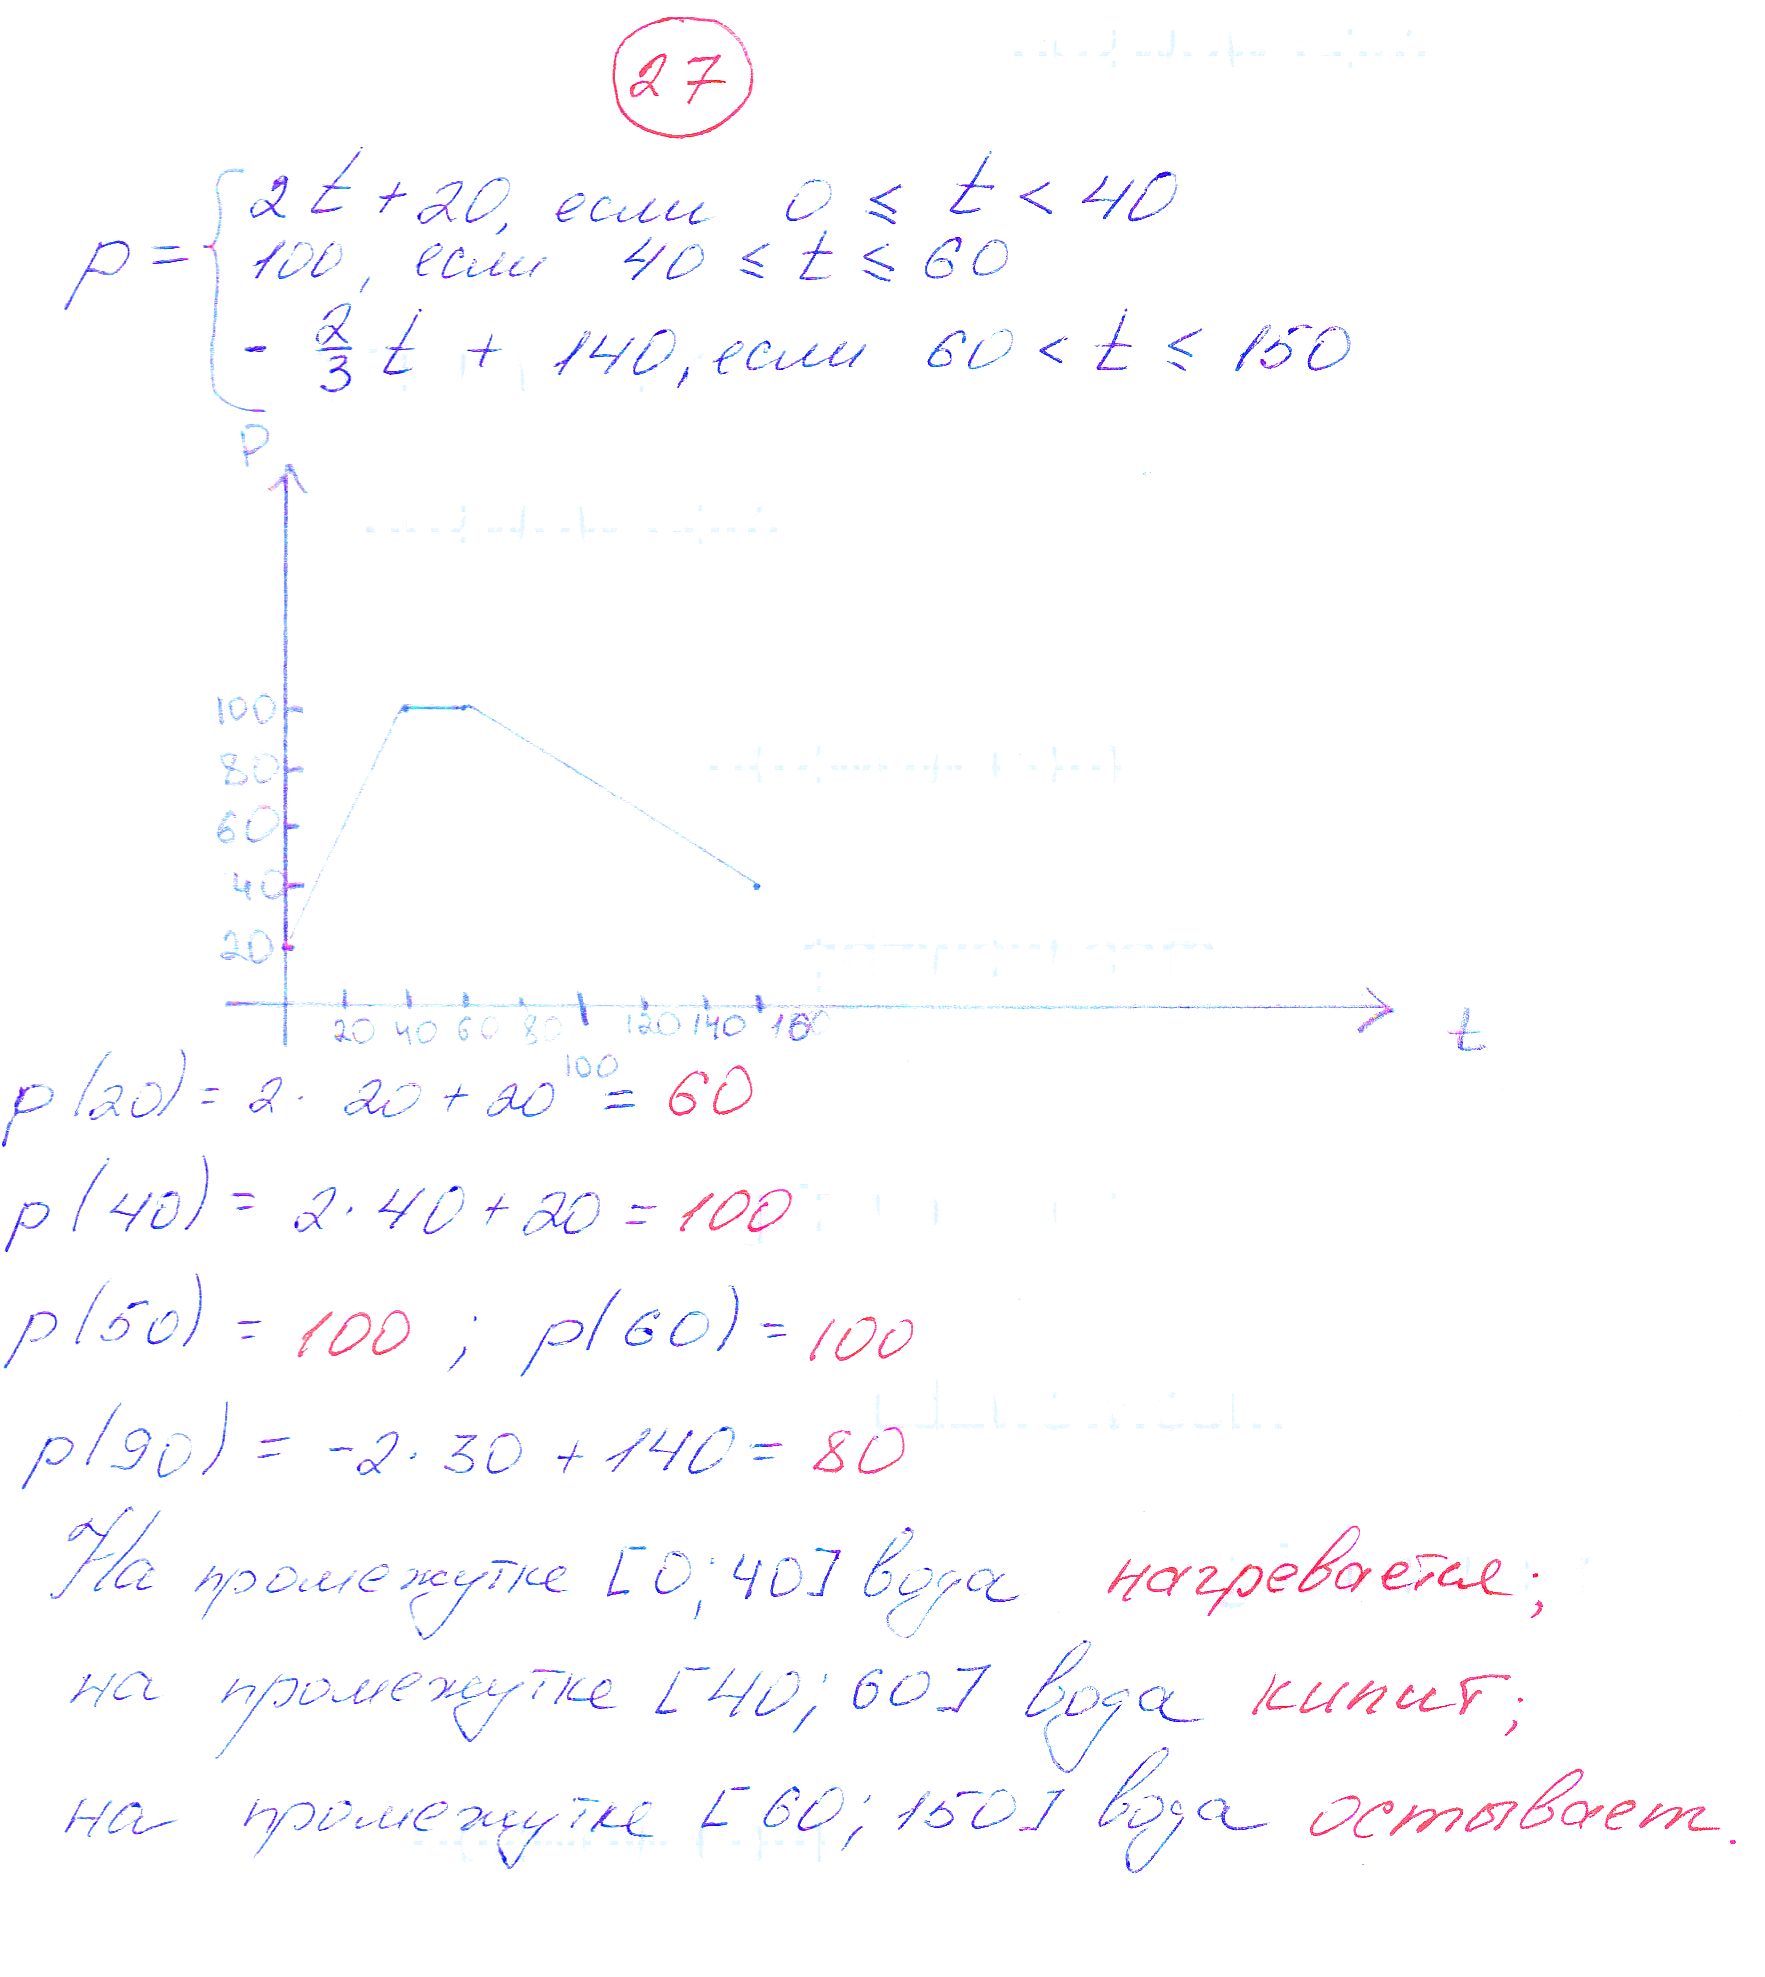 27
2t + 20, если 0 ≤ t < 40
p = { 100, если 40 ≤ t ≤ 60
- 2/3 t + 140, если 60 < t ≤ 150
p
100
80
60
40
20
20 40 60 80 100 120 140 160
t
p(20) = 2 · 20 + 20 = 60
p(40) = 2 · 40 + 20 = 100
p(50) = 100 ; p(60) = 100
p(90) = -2 · 30 + 140 = 80
На промежутке [0; 40] вода нагревается;
на промежутке [40; 60] вода кипит;
на промежутке [60; 150] вода остывает.